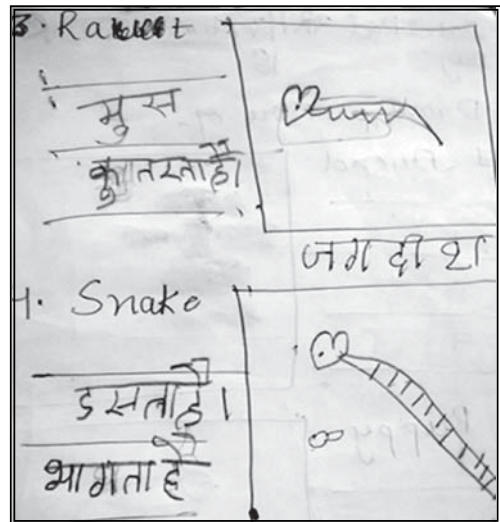 3. Ra
मुस
कुतरता है।
जगदीश
4. Snake
डसता है।
भागता है